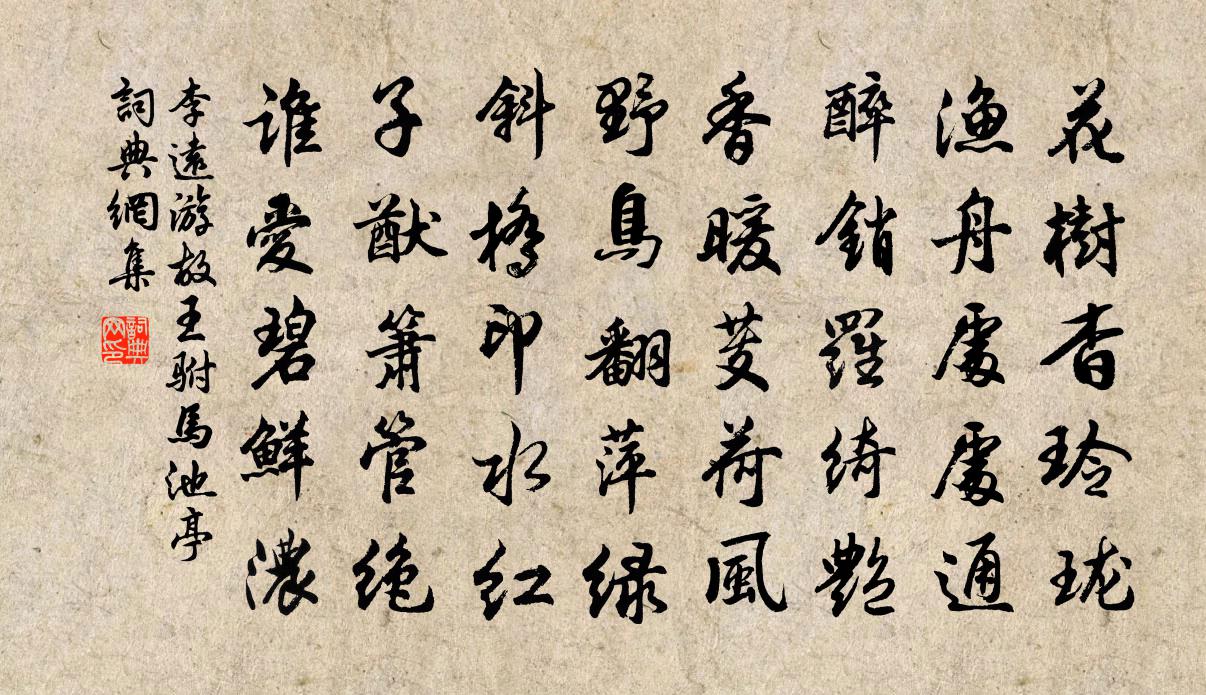 花樹杳玲瓏
漁舟處處通
醉銷羅綺艷
香暖芰荷風
野鳥翻萍綠
斜橋印水紅
子猷簫管絕
誰愛碧鮮濃
李遠游故王駙馬池亭
詞典網集
詞典
网印